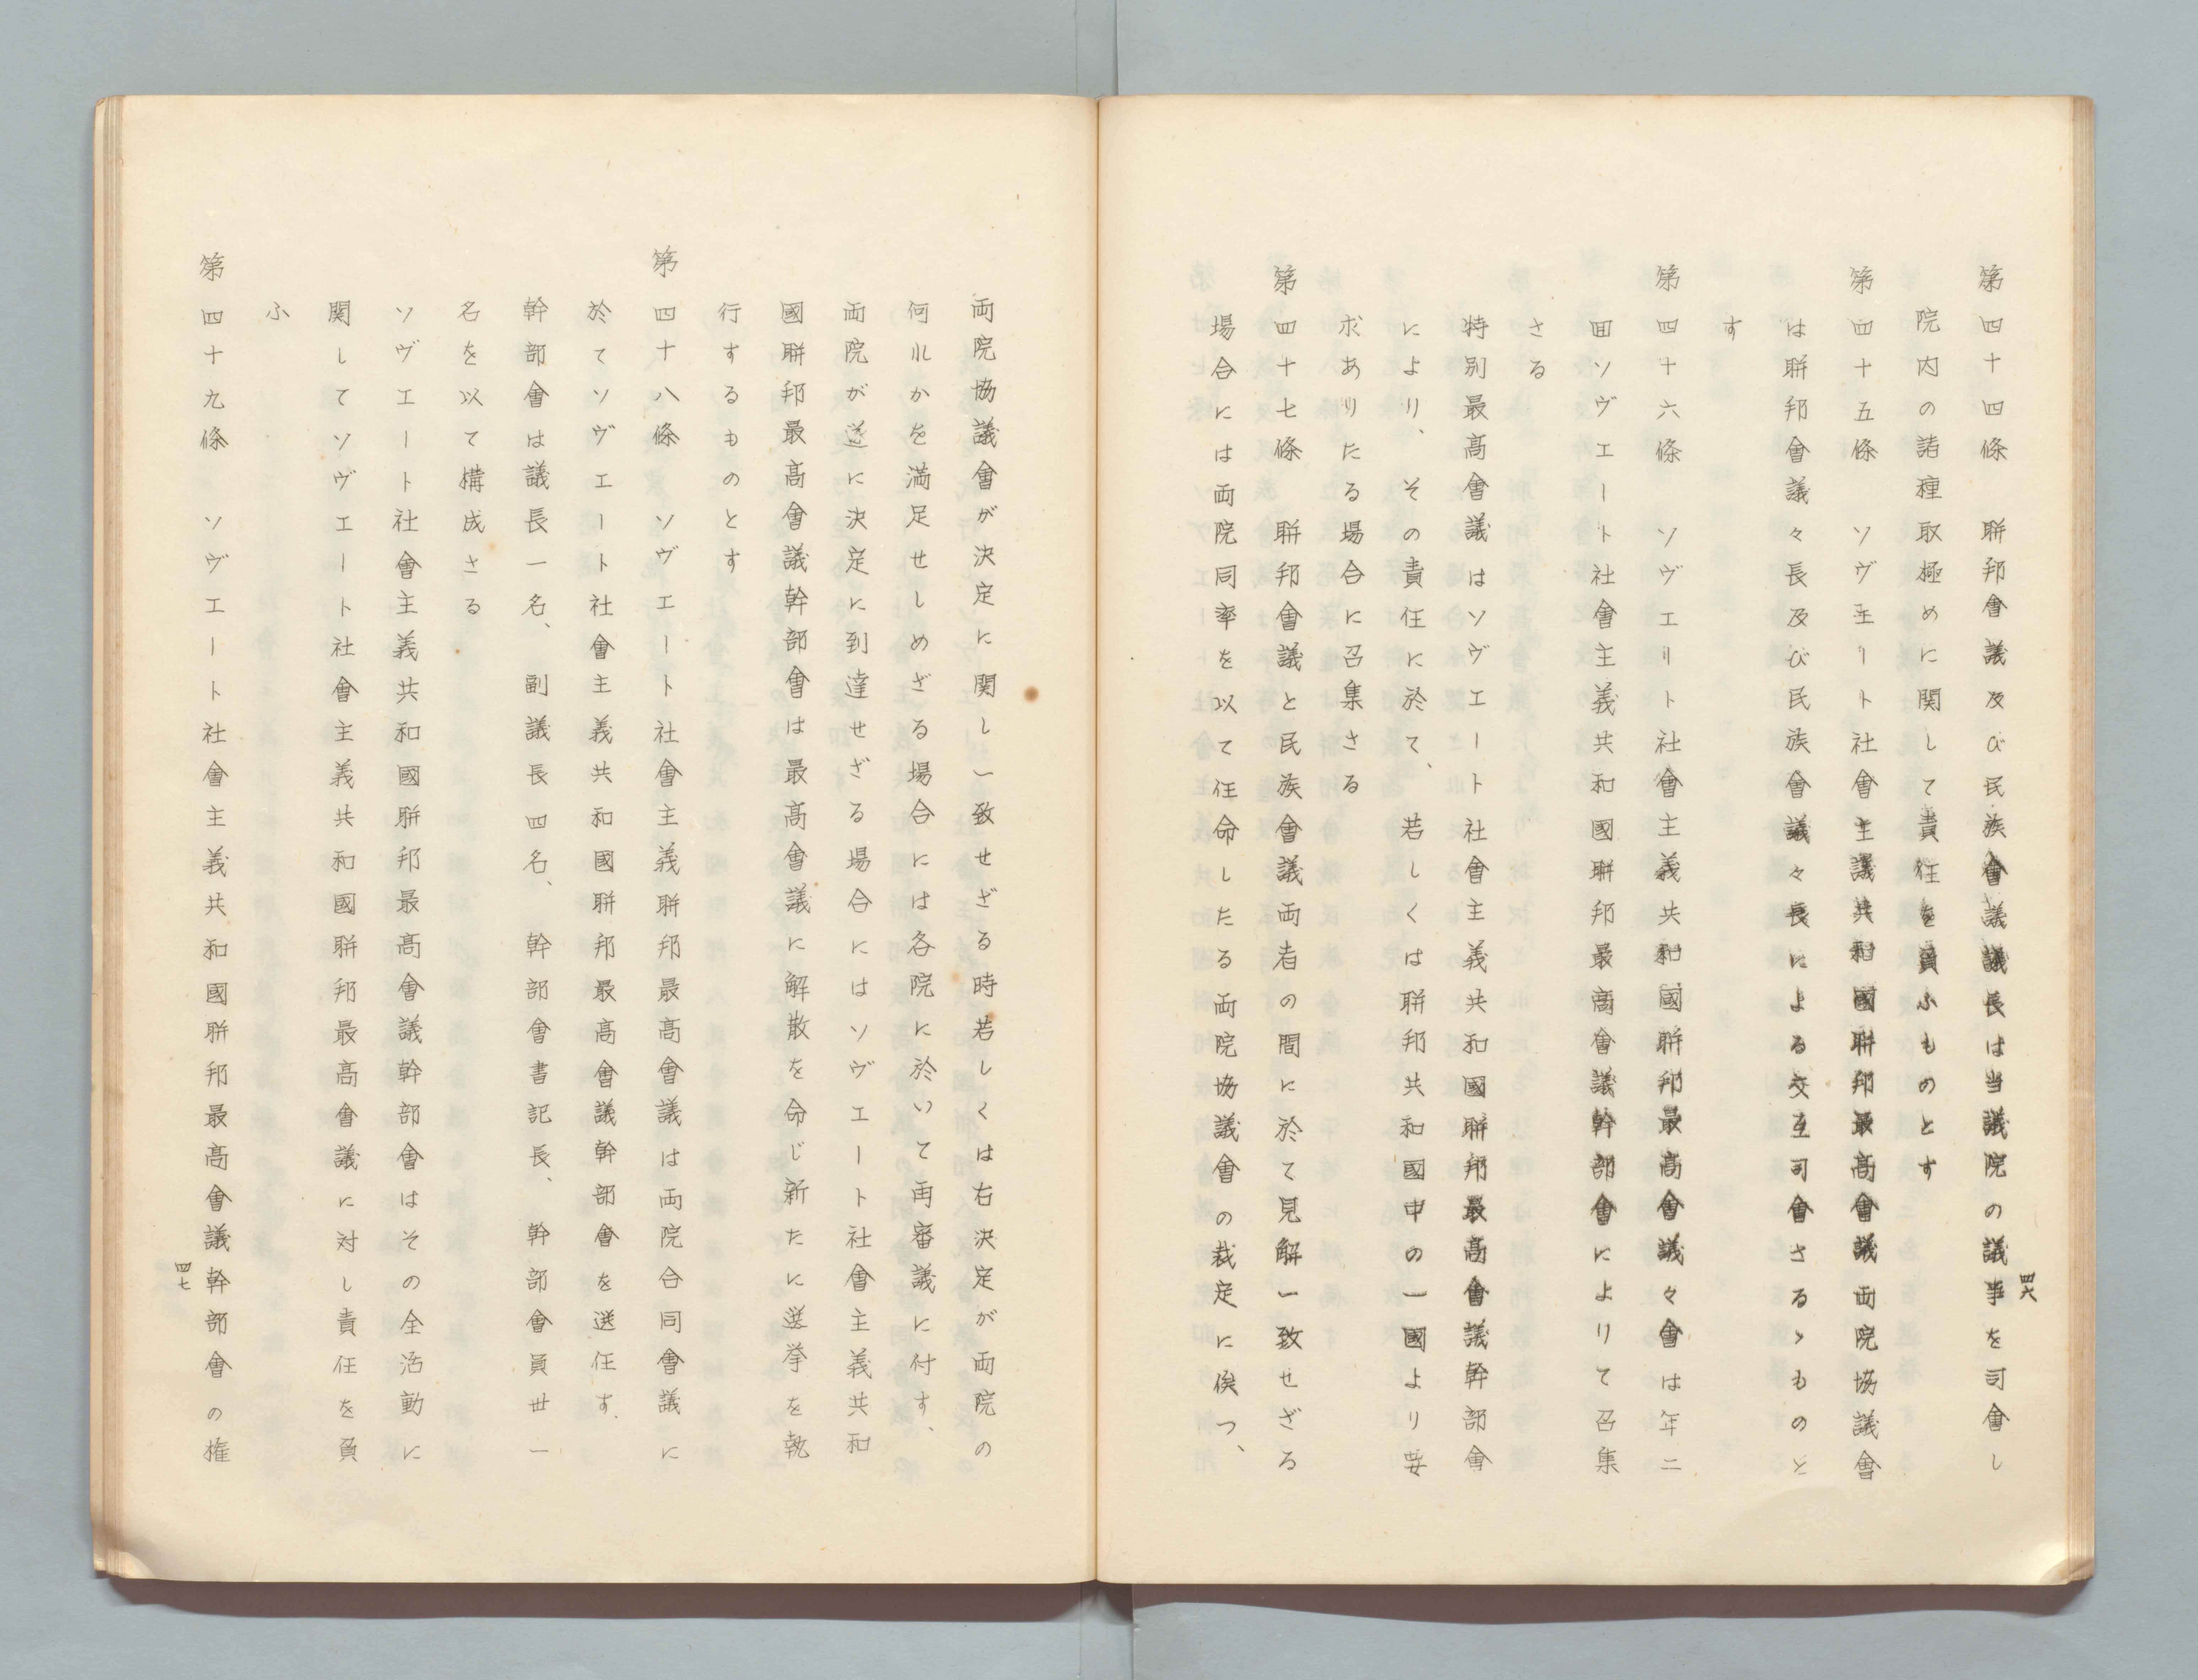 第四十四條　聯邦會議及び民族會議議長は当議院の議事を司會し
院内の諸種取極めに関して責任を員ふものとす
第四十五條　ソヴエート社會主議共和國聯邦最高會議両院協議會
は聯邦會議々長及び民族會議々長による交互司會さるゝものと
す
第四十六條　ソヴエート社會主義共和國聯邦最高會議々會は年二
回ソヴエート社會主義共和國聯邦最高會議幹部會によりて召集
さる
特別最高會議はソヴエート社會主義共和國聯邦最高會議幹部會
により、その責任に於て、若しくは聯邦共和國中の一國より要
求ありたる場合に召集さる
第四十七條　聯邦會議と民族會議両者の間に於て見解一致せざる
場合には両院同率を以て任命したる両院協議會の裁定に俟つ、
四六
両院協議會が決定に関し一致せざる時若しくは右決定が両院の
何れかを満足せしめざる場合には各院に於いて再審議に付す、
両院が遂に決定に到達せざる場合にはソヴエート社會主義共和
國聯邦最高會議幹部會は最高會議に解散を命じ新たに選挙を執
行するものとす
第四十八條　ソヴエート社會主義聯邦最高會議は両院合同會議に
於てソヴエート社會主義共和國聯邦最高會議幹部會を選任す、
幹部會は議長一名、副議長四名、幹部會書記長、幹部會員丗一
名を以て構成さる
ソヴエート社會主義共和國聯邦最高會議幹部會はその全活動に
関してソヴエート社會主義共和國聯邦最高會議に対し責任を負
ふ
第四十九條　ソヴエート社會主義共和國聯邦最高會議幹部會の権
四七